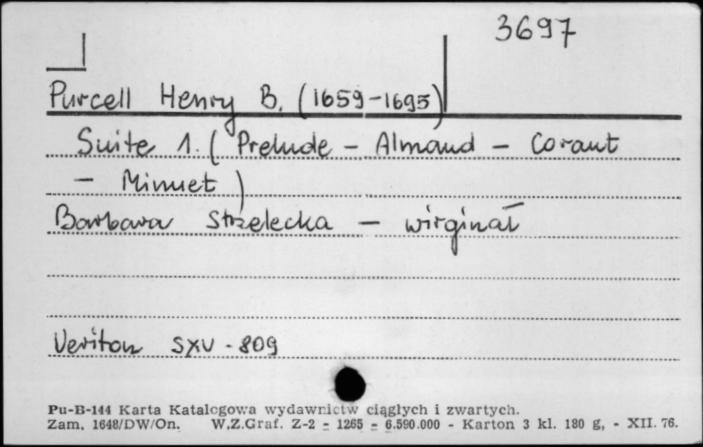 3697
Purcell Henry B. (1659-1695)
Suite 1. ( Prelude - Almand - Corant
- Minuet )
Barbara Strzelecka - wirginał
Veriton SXV - 809
Pu-B-144 Karta Katalogowa wydawnictw ciągłych i zwartych.
Zam. 1648/DW/On. W.Z.Graf. Z-2 - 1265 - 6.590.000 - Karton 3 kl. 180 g, - XII. 76.